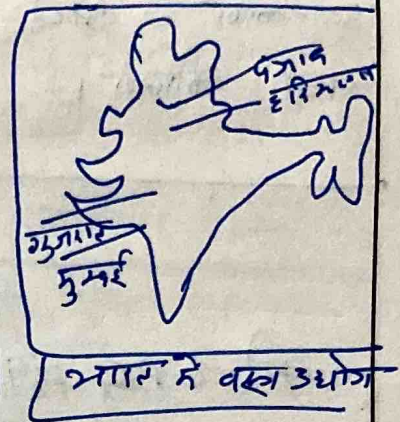 पंजाब
हरियाणा
गुजरात
मुम्बई
भारत में वस्त्र उद्योग